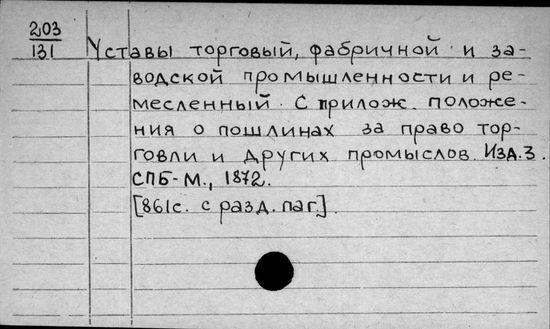 203
131
Уставы торговый, фабричной и за-
водской промышленности и ре-
месленный. С прилож. положе-
ния о пошлинах за право тор-
говли и других промыслов. Изд. 3.
СПБ-М., 1872.
[861с. с разд. паг.].